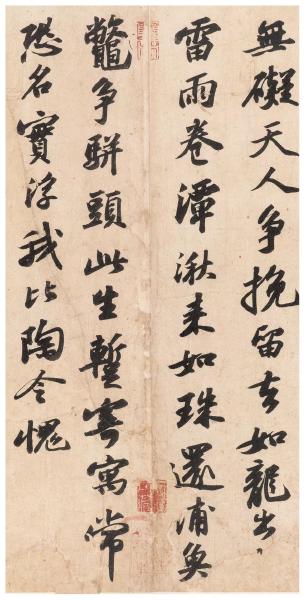 無礙天人争挽留去如龍出山
雷雨卷潭湫来如珠還浦魚
鼈争駢頭此生暫寄寓常
恐名實浮我比陶令愧